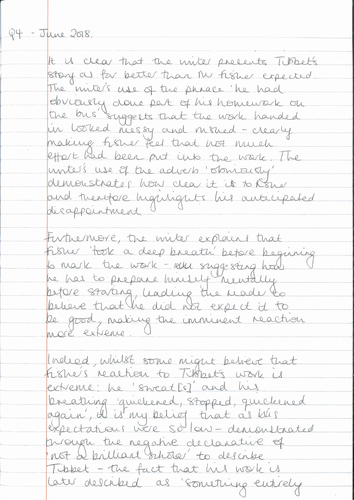 Q4 - June 2018.
It is clear that the writer presents Tibbet's
story as far better than Mr Fisher expected.
The writer's use of the phrase 'he had
obviously done part of his homework on
the bus' suggests that the work handed
in looked messy and rushed - clearly
making Fisher feel that not much
effort had been put into the work. The
writer's use of the adverb 'obviously'
demonstrates how clear it is to Fisher
and therefore highlights his anticipated
disappointment.
Furthermore, the writer explains that
Fisher 'took a deep breath' before beginning
to mark the work - suggesting how
he has to prepare himself mentally
before starting, leading the reader to
believe that he did not expect it to
be good, making the imminent reaction
more extreme.
Indeed, whilst some might believe that
Fisher's reaction to Tibbet's work is
extreme: he 'sweat[s]' and his
breathing 'quickened, stopped, quickened
again', it is my belief that as his
expectations were so low - demonstrated
through the negative declarative of
'not a brilliant scholar' to describe
Tibbet - the fact that his work is
later described as 'something entirely